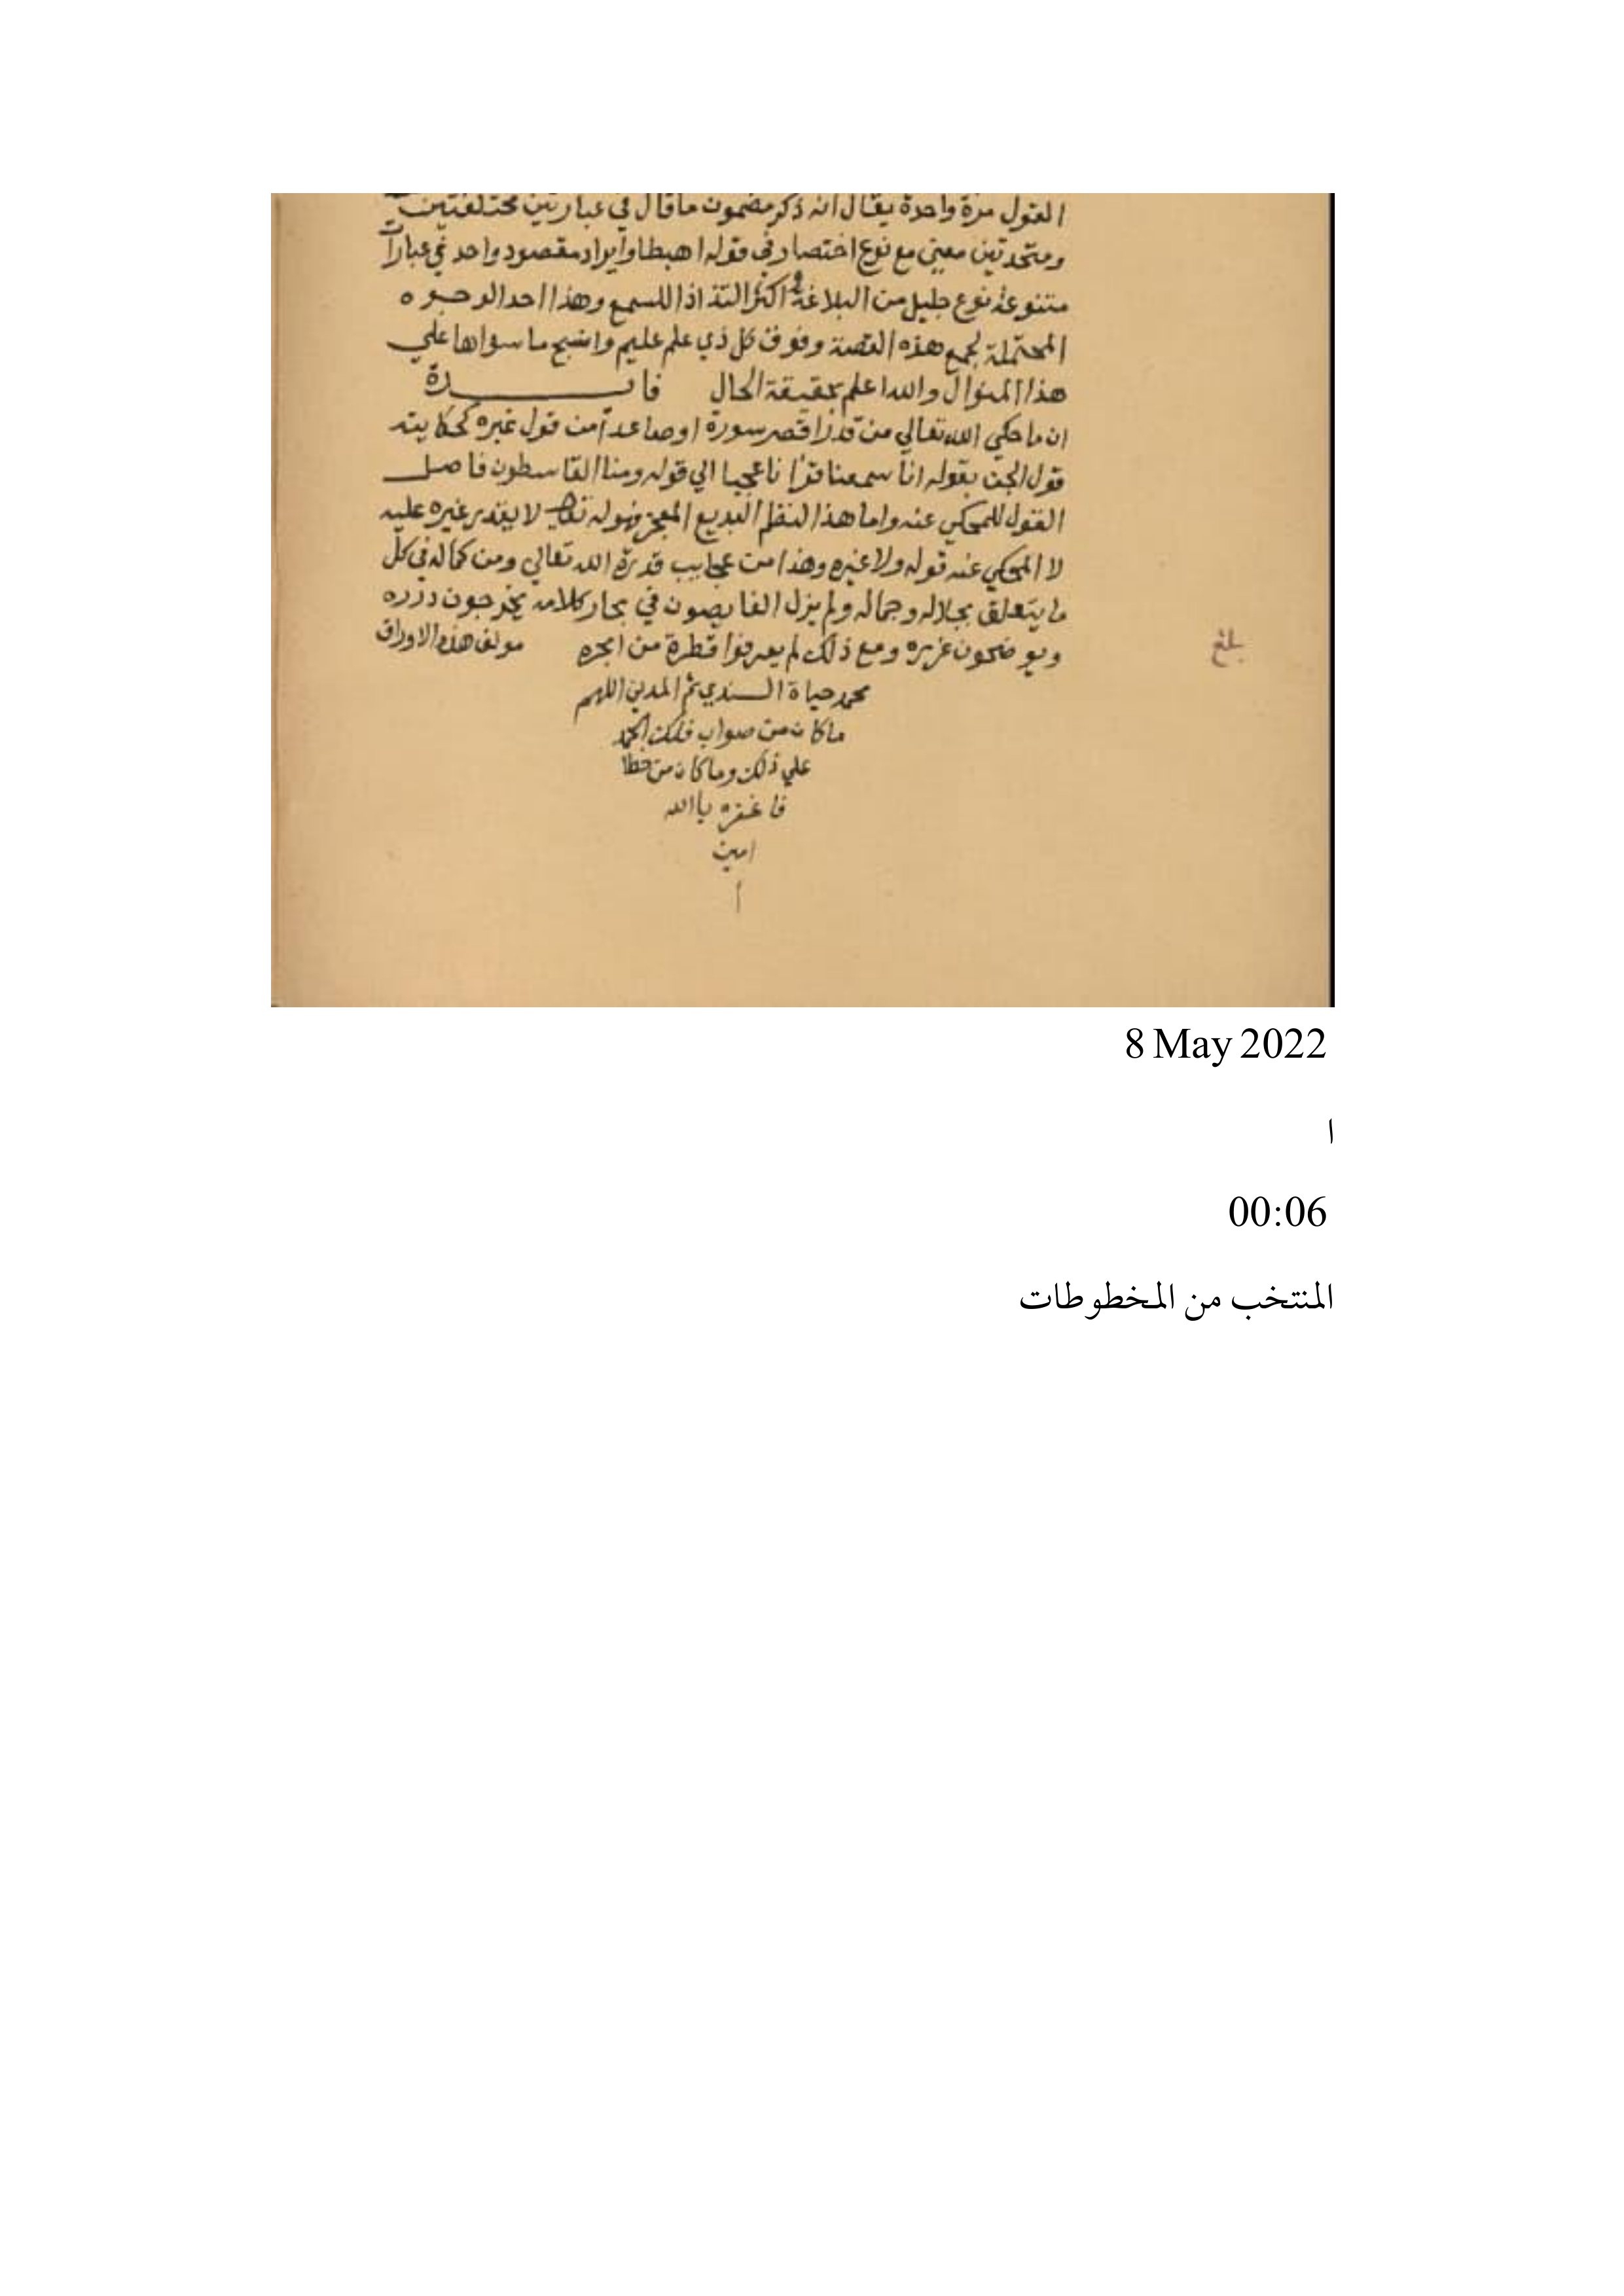 القول مرة واحدة يقال انه ذكر مضمون ما قال في عبارتين مختلفتين
ومتحدتين معني مع نوع اختصار في قوله اهبطا وايراد مقصود واحد في عبارات
متنوعة نوع جليل من البلاغة و اكثر التذاذا للسمع وهذا احد الوجوه
المحتملة لجمع هذه القصة وفوق كل ذي علم عليم وانسج ما سواها علي
هذا المنوال والله اعلم بحقيقة الحال فائدة
ان ما حكي الله تعالي من قدر اقصر سورة او صاعدا من قول غيره كحكايته
قول الجن بقوله انا سمعنا قرانا عجبا الي قوله ومنا القاسطون فاصل
القول للمحكي عنه واما هذا النظم البديع المعجز فهو له تعالى لا يقدر غيره عليه
لا المحكي عنه قوله ولا غيره وهذا من عجايب قدرة الله تعالي ومن كماله في كل
ما يتعلق بجلاله وجماله ولم يزل الغايصون في بحار كلامه يخرجون درره
ويوضحون غرره ومع ذلك لم يعرفوا قطرة من ابحره مولف هذه الاوراق
بلغ
محمد حياة السندي ثم المدين اللهم
ما كان من صواب فلك الحمد
علي ذلك وما كان من خطا
فاغفره يا الله
امين
8 May 2022
ا
00:06
المنتخب من المخطوطات